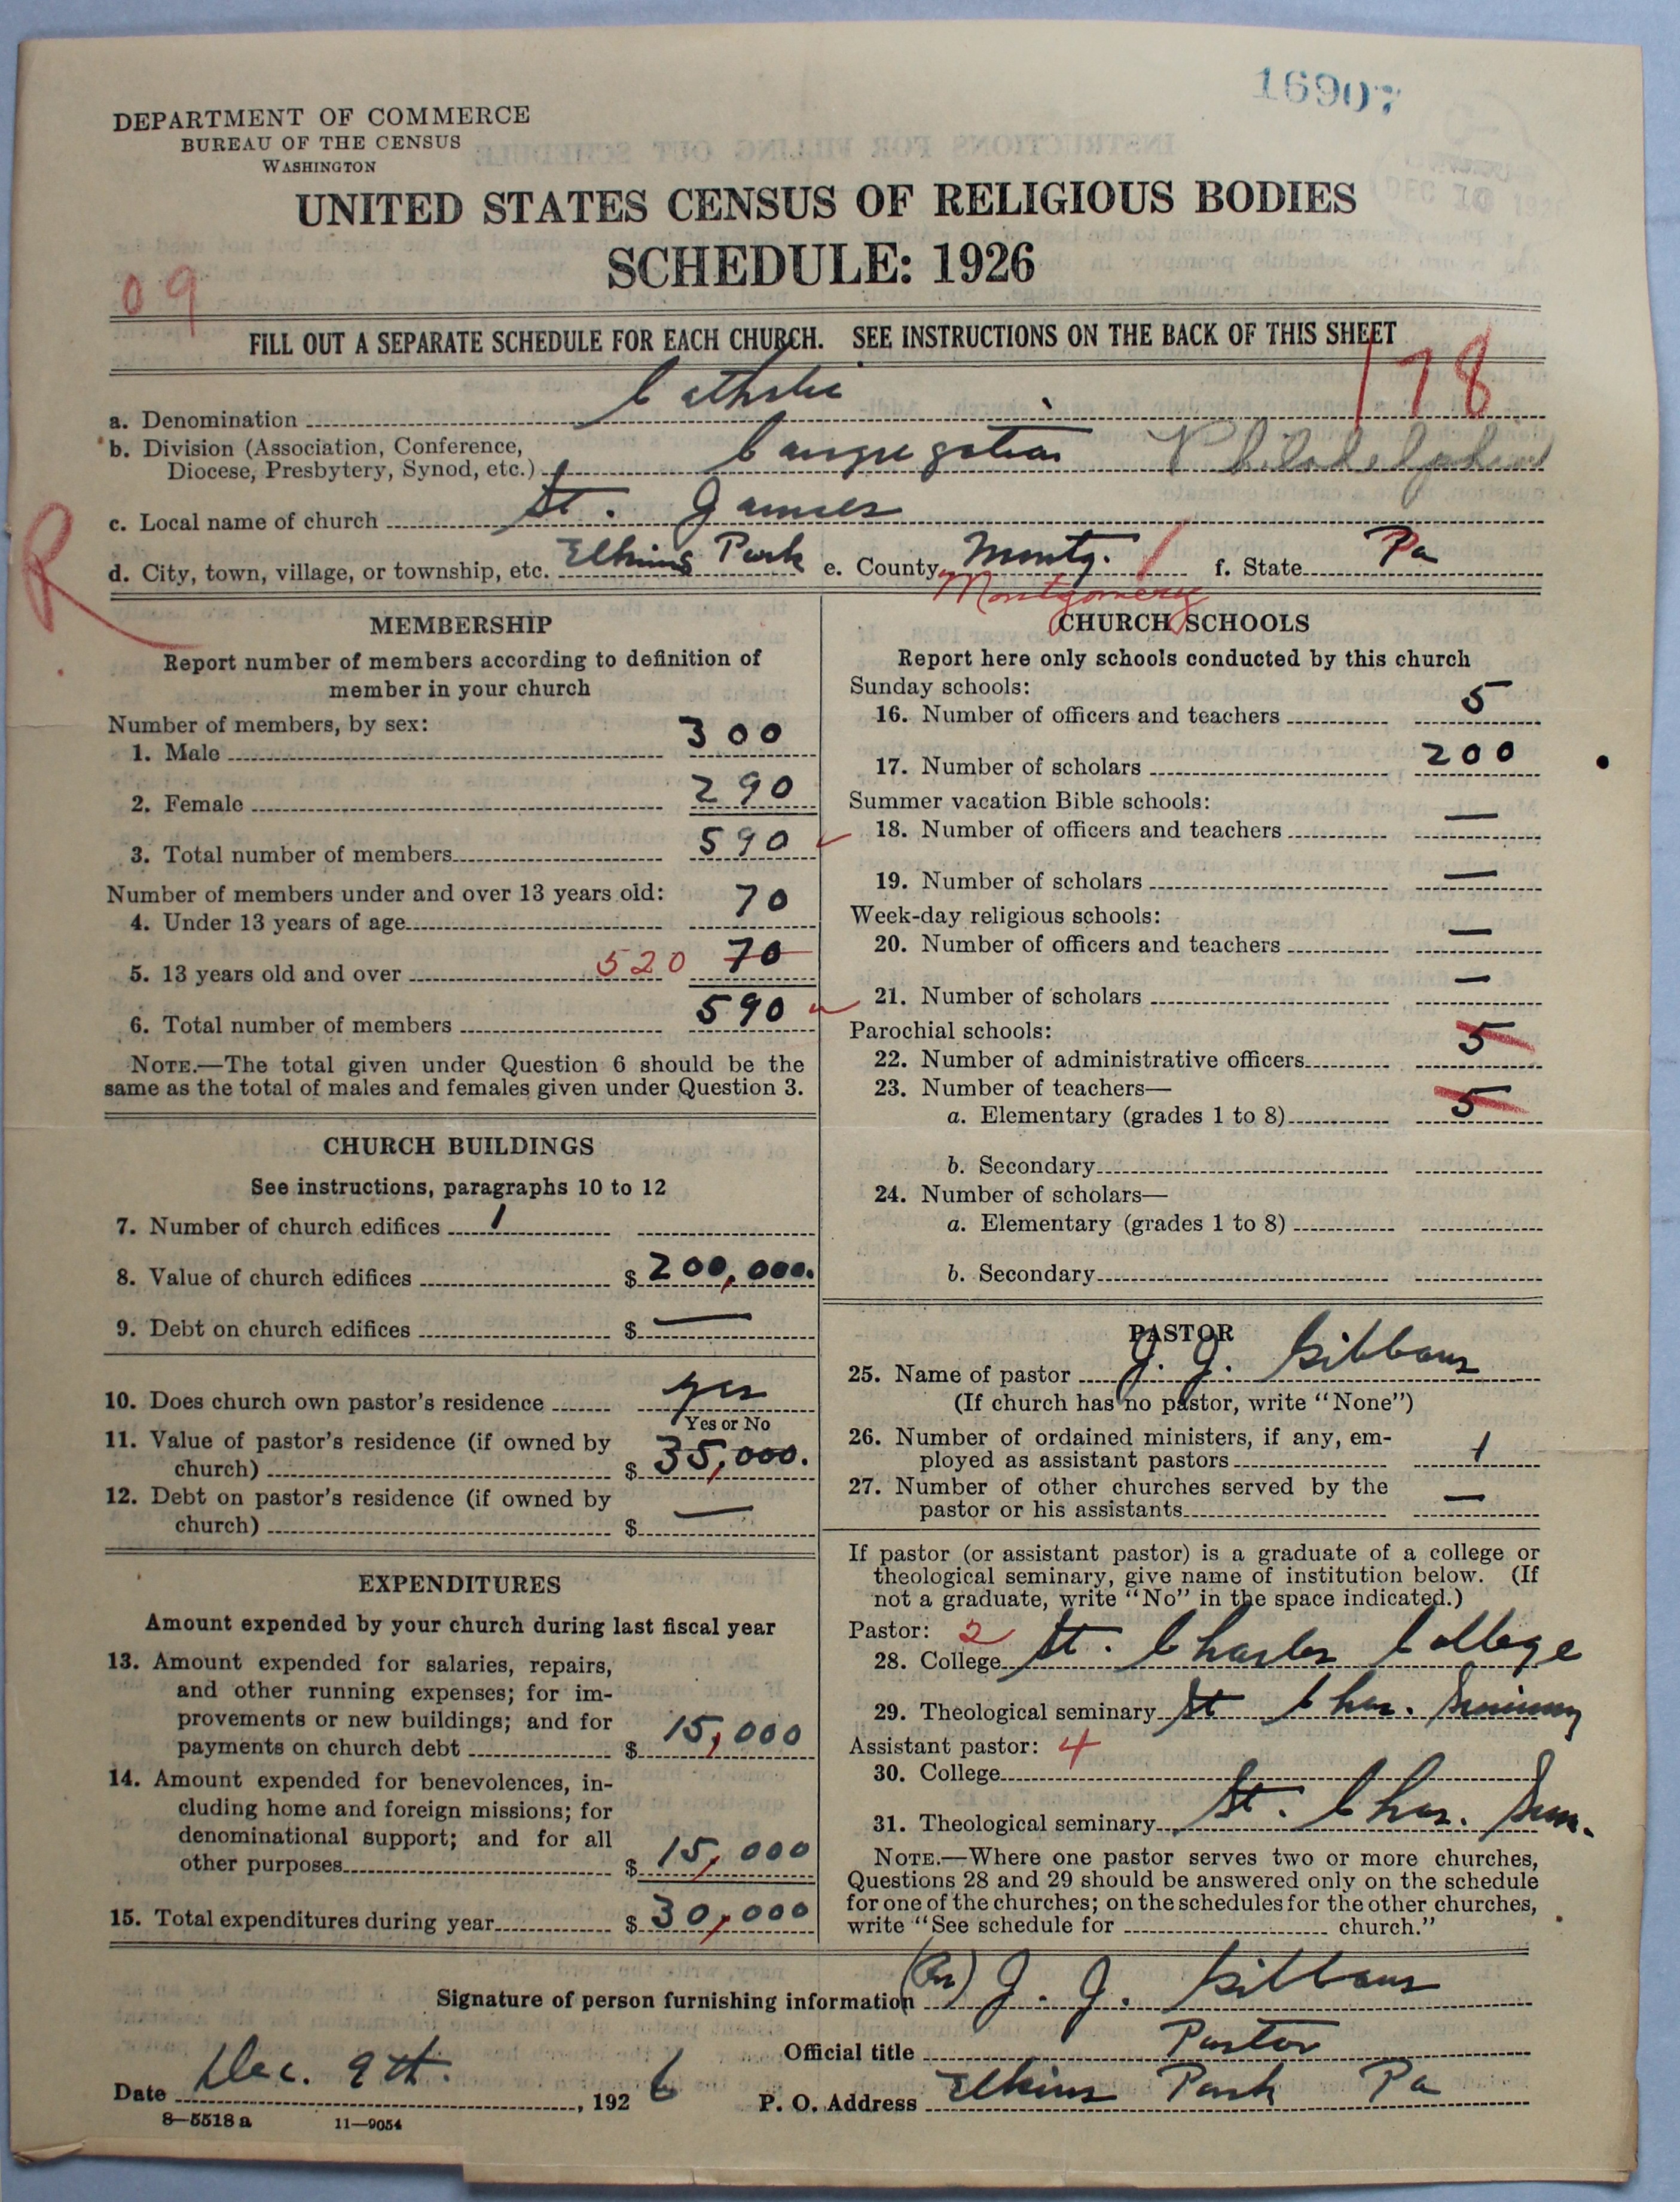 16907
DEPARTMENT OF COMMERCE
BUREAU OF THE CENSUS
WASHINGTON
UNITED STATES CENSUS OF RELIGIOUS BODIES
SCHEDULE: 1926
09
FILL OUT A SEPARATE SCHEDULE FOR EACH CHURCH. SEE INSTRUCTIONS ON THE BACK OF THIS SHEET
178
a. Denomination Catholic
b. Division (Association, Conference,
Diocese, Presbytery, Synod, etc.) Congregation Philadelphia
c. Local name of church St. James
R
d. City, town, village, or township, etc. Elkins Park e. County Montg. f. State Pa
Montgomery
MEMBERSHIP
Report number of members according to definition of
member in your church
Number of members, by sex:
1. Male 300
2. Female 290
3. Total number of members 590
Number of members under and over 13 years old:
4. Under 13 years of age 70
5. 13 years old and over 520 70
6. Total number of members 590
NOTE.—The total given under Question 6 should be the
same as the total of males and females given under Question 3.
CHURCH BUILDINGS
See instructions, paragraphs 10 to 12
7. Number of church edifices 1
8. Value of church edifices $ 200,000.
9. Debt on church edifices $ —
10. Does church own pastor's residence yes
Yes or No
11. Value of pastor's residence (if owned by
church) $ 35,000.
12. Debt on pastor's residence (if owned by
church) $ —
EXPENDITURES
Amount expended by your church during last fiscal year
13. Amount expended for salaries, repairs,
and other running expenses; for im-
provements or new buildings; and for
payments on church debt $ 15,000
14. Amount expended for benevolences, in-
cluding home and foreign missions; for
denominational support; and for all
other purposes $ 15,000
15. Total expenditures during year $ 30,000
CHURCH SCHOOLS
Report here only schools conducted by this church
Sunday schools:
16. Number of officers and teachers 5
17. Number of scholars 200
Summer vacation Bible schools:
18. Number of officers and teachers —
19. Number of scholars —
Week-day religious schools:
20. Number of officers and teachers —
21. Number of scholars —
Parochial schools:
22. Number of administrative officers 5
23. Number of teachers—
a. Elementary (grades 1 to 8) 5
b. Secondary
24. Number of scholars—
a. Elementary (grades 1 to 8)
b. Secondary
PASTOR
25. Name of pastor J. J. Gibbons
(If church has no pastor, write "None")
26. Number of ordained ministers, if any, em-
ployed as assistant pastors 1
27. Number of other churches served by the
pastor or his assistants —
If pastor (or assistant pastor) is a graduate of a college or
theological seminary, give name of institution below. (If
not a graduate, write "No" in the space indicated.)
Pastor: 2
28. College St. Charles College
29. Theological seminary St Chas. Seminary
Assistant pastor: 4
30. College
31. Theological seminary St. Chas. Sem.
NOTE.—Where one pastor serves two or more churches,
Questions 28 and 29 should be answered only on the schedule
for one of the churches; on the schedules for the other churches,
write "See schedule for church."
Signature of person furnishing information J. J. Gibbons
Official title Pastor
Date Dec. 9th., 1926 P. O. Address Elkins Park Pa
8—5518 a 11—9054